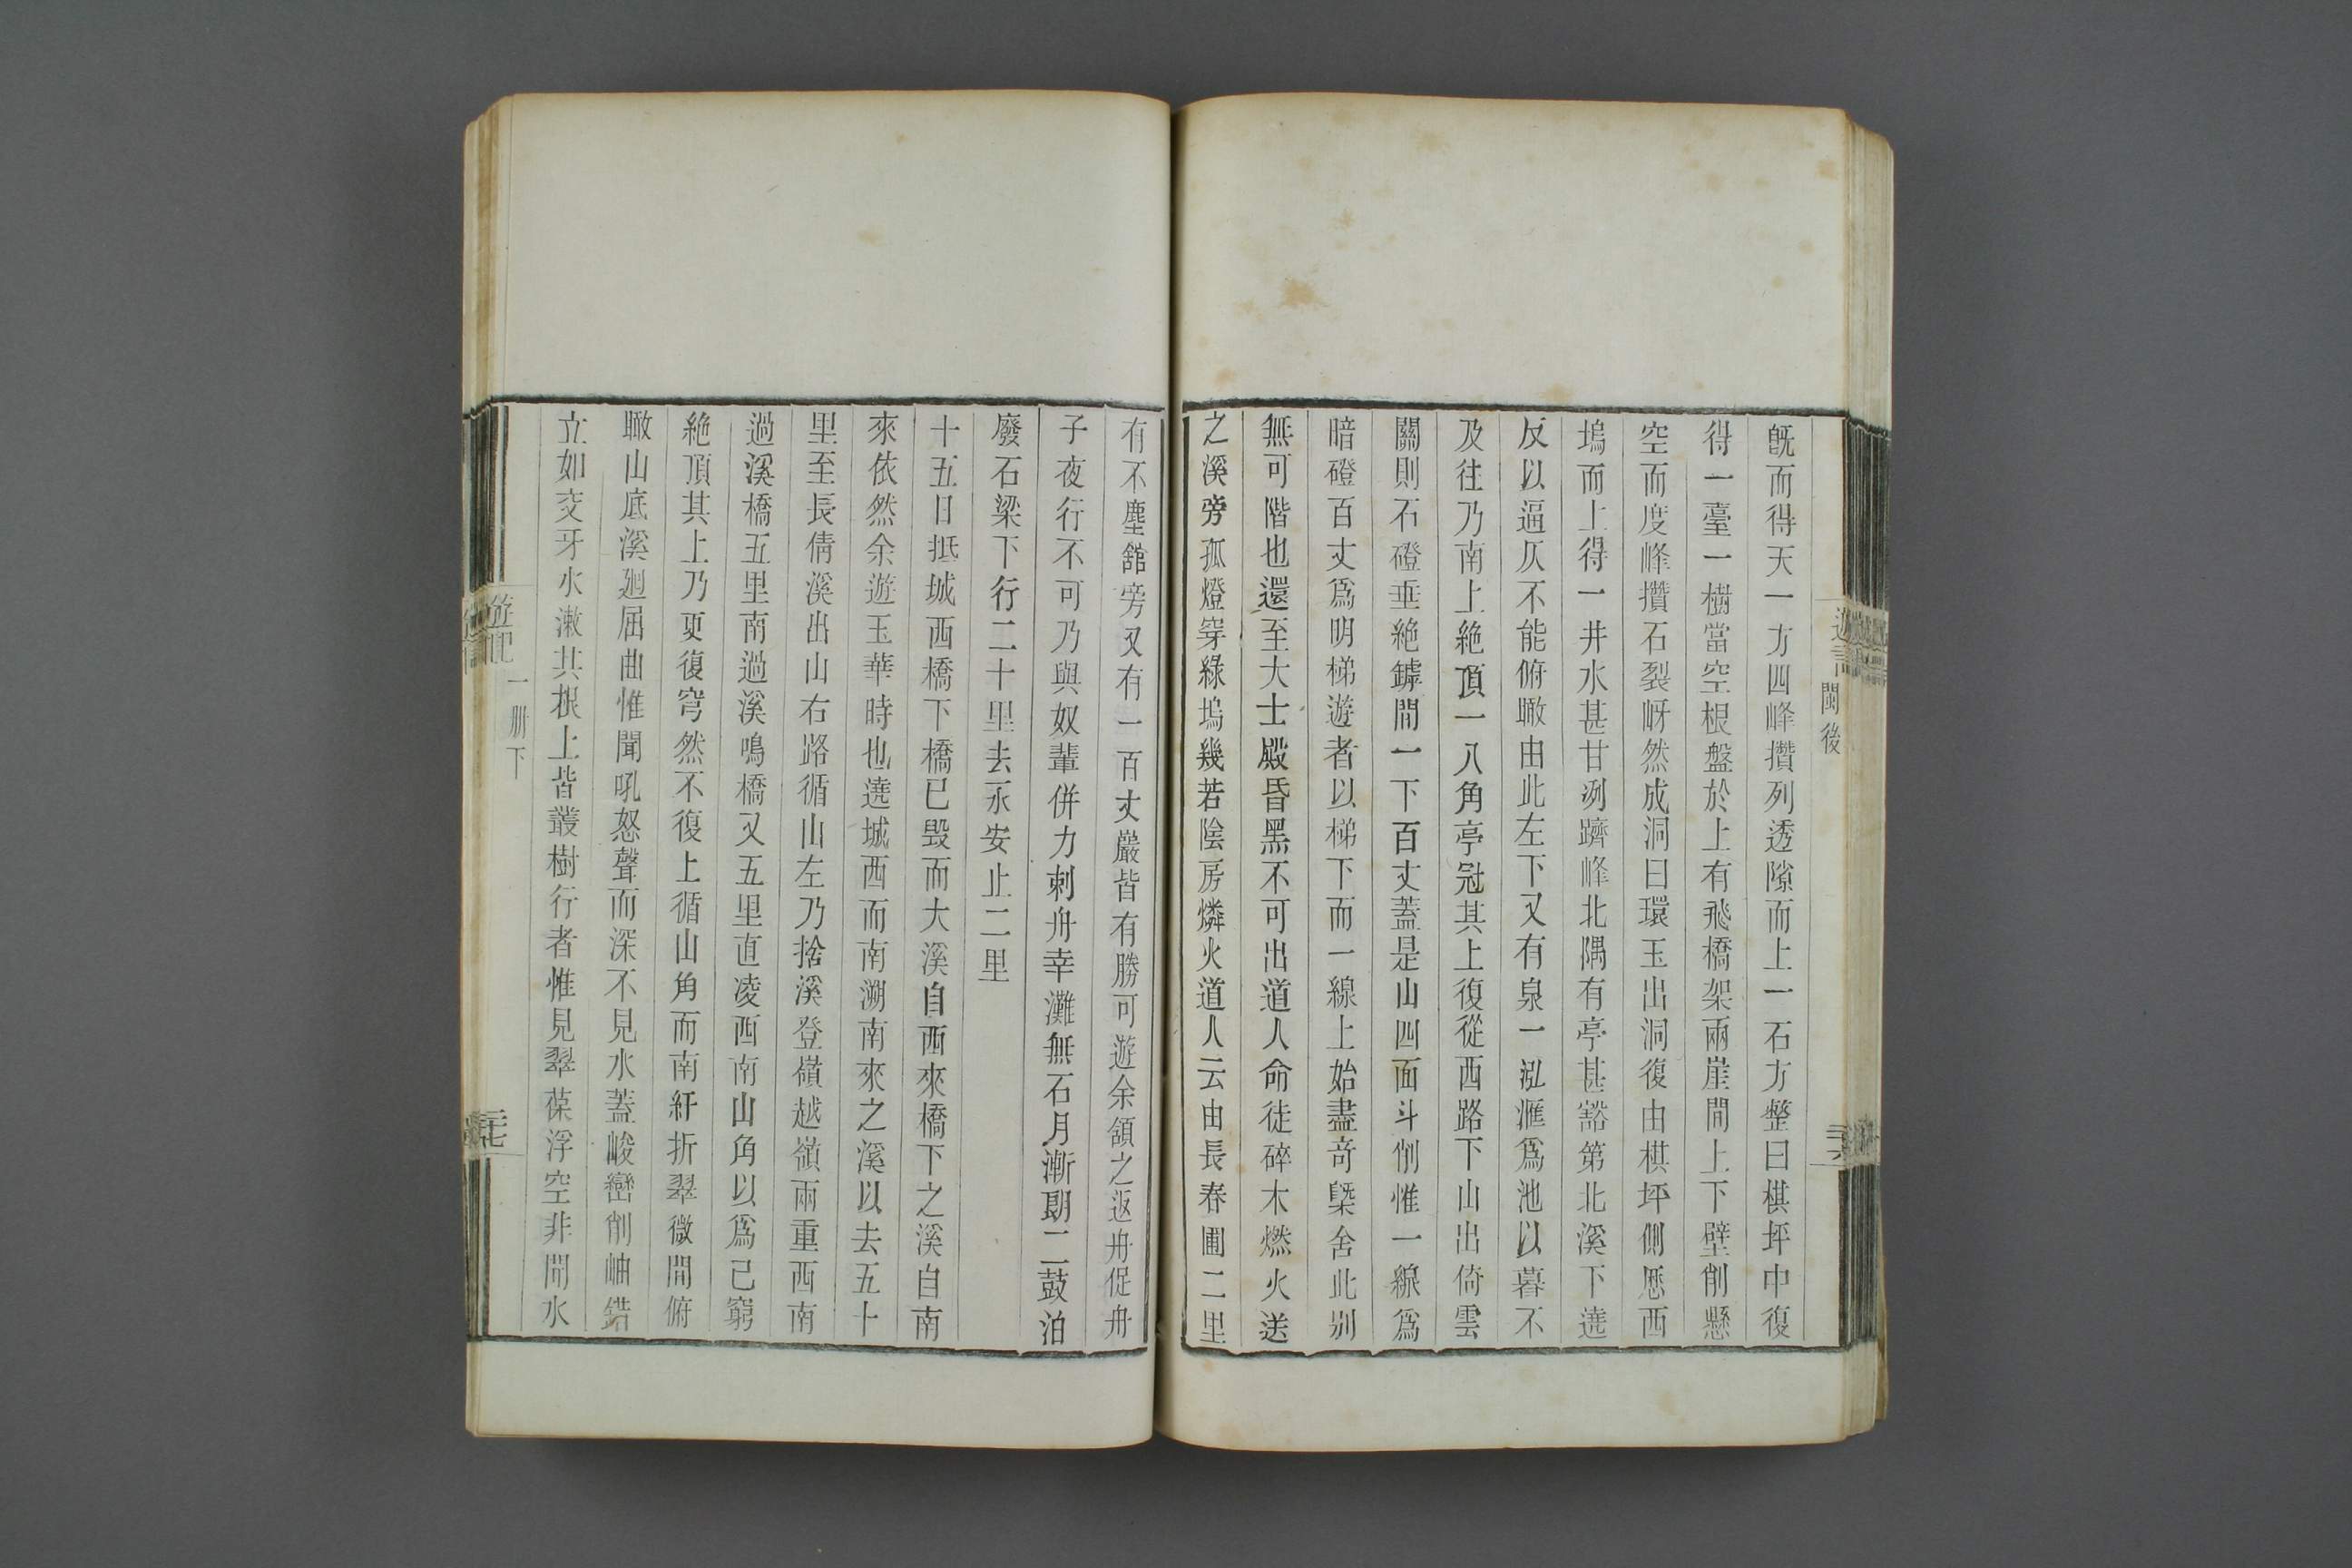 閩後
既而得天一方四峰攢列透隙而上一石方整曰棋坪中復
得一臺一樹當空根盤於上有飛橋架兩崖間上下壁削懸
空而度峰攢石裂岈然成洞曰環玉出洞復由棋坪側歷西
塢而上得一井水甚甘冽躋峰北隅有亭甚豁第北溪下遶
反以逼仄不能俯瞰由此左下又有泉一泓滙爲池以暮不
及往乃南上絶頂一八角亭冠其上復從西路下山出倚雲
關則石磴垂絶罅間一下百丈蓋是山四面斗削惟一線爲
暗磴百丈爲明梯遊者以梯下而一線上始盡奇槩舍此別
無可階也還至大士殿昏黑不可出道人命徒碎木燃火送
之溪旁孤燈穿綠塢幾若陰房燐火道人云由長春圃二里
有不塵舘旁又有一百丈巖皆有勝可遊余頷之返舟促舟
子夜行不可乃與奴輩併力刺舟幸灘無石月漸朗二鼓泊
廢石梁下行二十里去永安止二里
十五日抵城西橋下橋已毁而大溪自西來橋下之溪自南
來依然余遊玉華時也遶城西而南溯南來之溪以去五十
里至長倩溪出山右路循山左乃捨溪登嶺越嶺兩重西南
過溪橋五里南過溪鳴橋又五里直凌西南山角以爲已窮
絶頂其上乃更復穹然不復上循山角而南紆折翠微間俯
瞰山底溪廻屈曲惟聞吼怒聲而深不見水蓋峻巒削岫錯
立如交牙水漱其根上皆叢樹行者惟見翠葆浮空非聞水
遊記
一册下